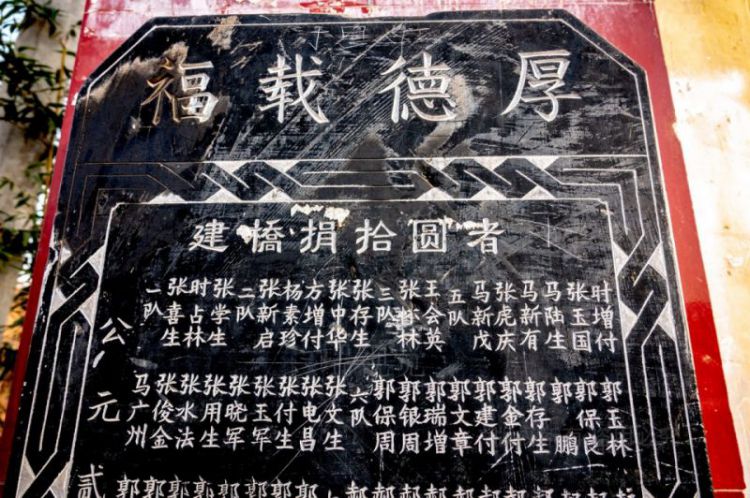 厚德载福
建橋捐拾圆者
一队 张喜生 时占林 张学生 二队 张新启 杨素珍 方增付 张中华 张存生 三队 张林 王会英 五队 马新戊 张虎庆 马新有 马陆生 张玉国 时增付
马广州 张俊金 张水法 张用生 张晓军 张玉军 张付生 张电昌 张文生 六队 郭保周 郭银周 郭瑞增 郭文章 郭建付 郭金付 郭存生 郭鹏 郭保良 郭玉林
公元贰